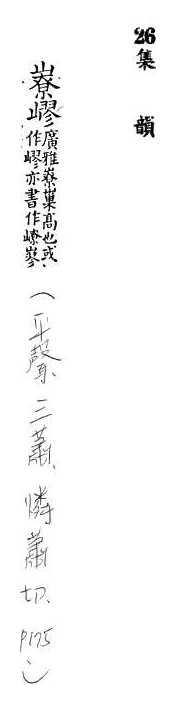 26 集 韻
嶚嵺廣雅嶚巢高也或作嵺亦書作嶛嵾
（平聲、三蕭、憐蕭切、P175）